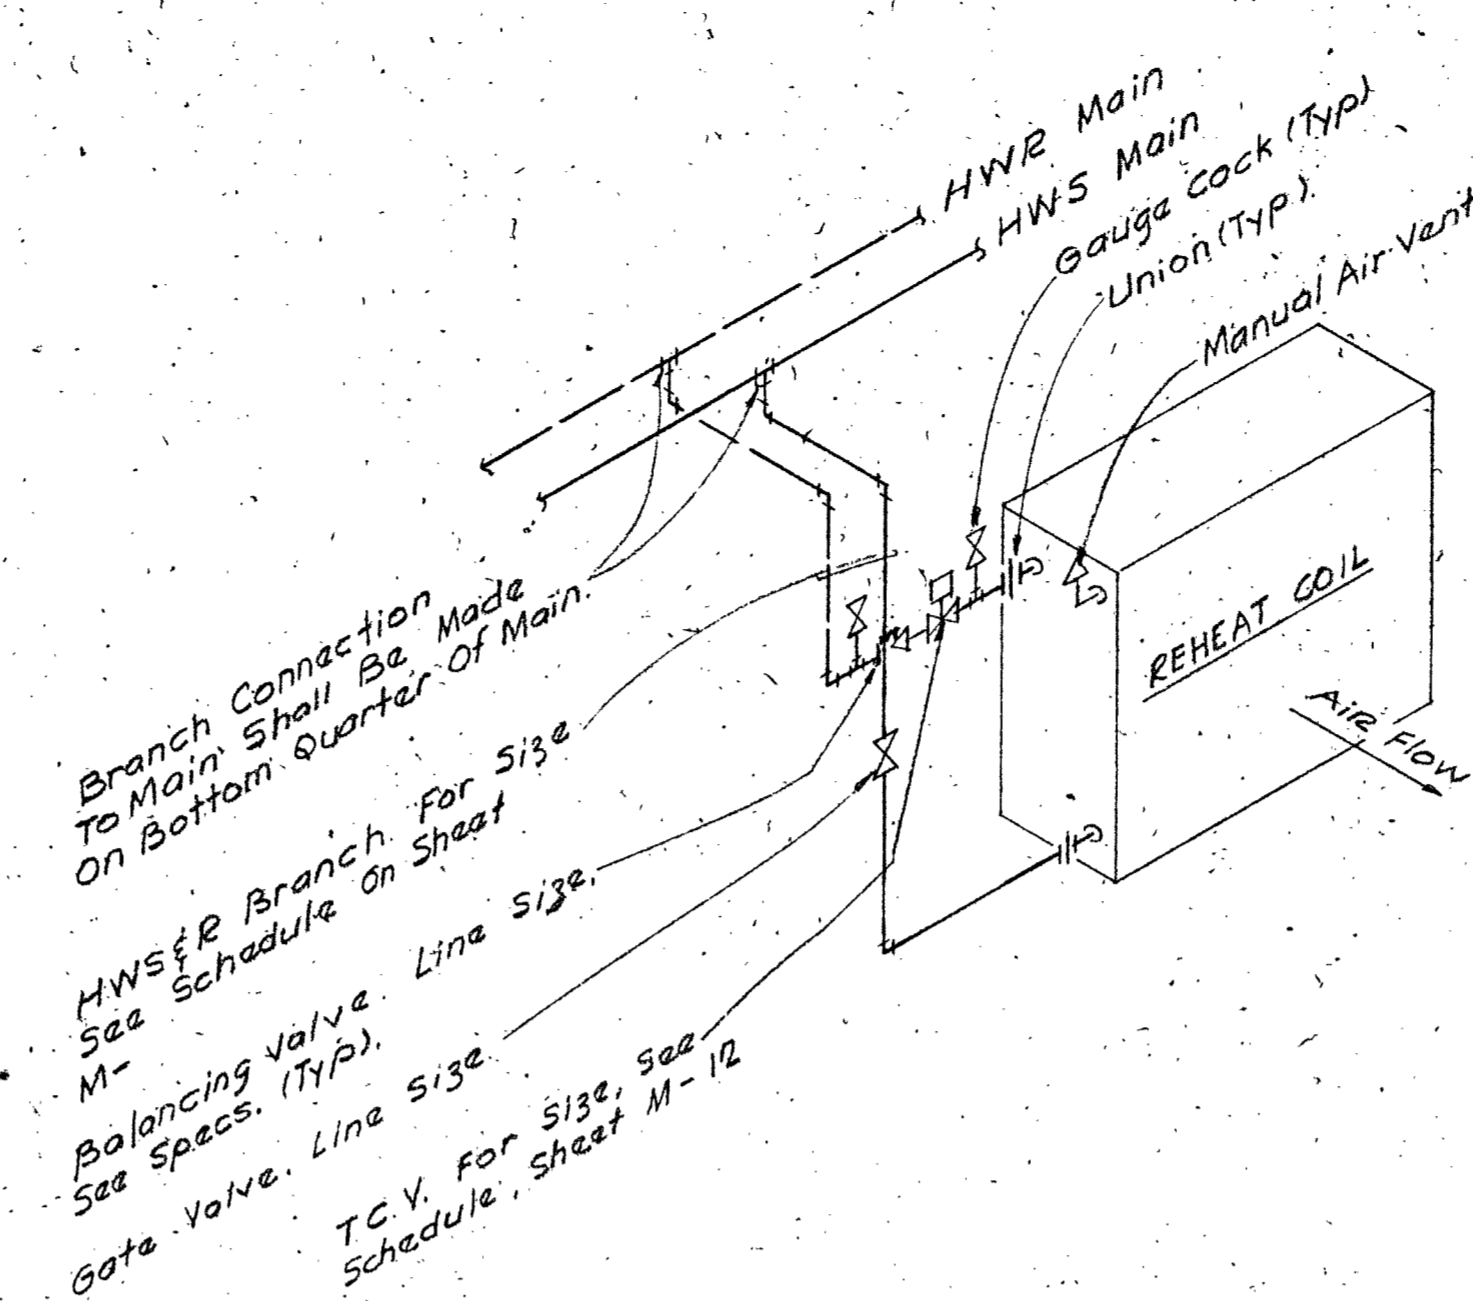 HWR Main
HWS Main
Gauge Cock (Typ)
Union (Typ).
Manual Air Vent
REHEAT COIL
AIR Flow
Branch Connection
To Main Shall Be Made
On Bottom Quarter Of Main.
HWS & R Branch. For Size
See Schedule On Sheet
M-
Balancing Valve. Line Size.
See Specs. (Typ).
Gate Valve. Line Size
T.C.V. For Size, See
Schedule, Sheet M-12